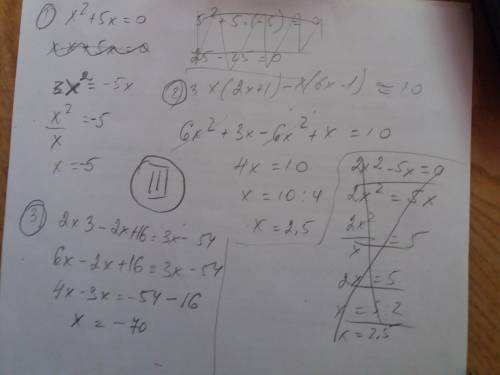 ① x² + 5x = 0
x x + 5x = 0
3x² = -5x
x²/x = -5
x = -5
5² + 5·(-5) = 0
25 - 25 = 0
② 3x(2x+1) - x(6x-1) = 10
6x² + 3x - 6x² + x = 10
4x = 10
x = 10 : 4
x = 2,5
III
③ 2x3 - 2x+16 = 3x - 54
6x - 2x + 16 = 3x - 54
4x - 3x = -54 - 16
x = -70
2x² - 5x = 0
2x² = 5x
2x²/x = 5
2x = 5
x = 5 : 2
x = 2,5